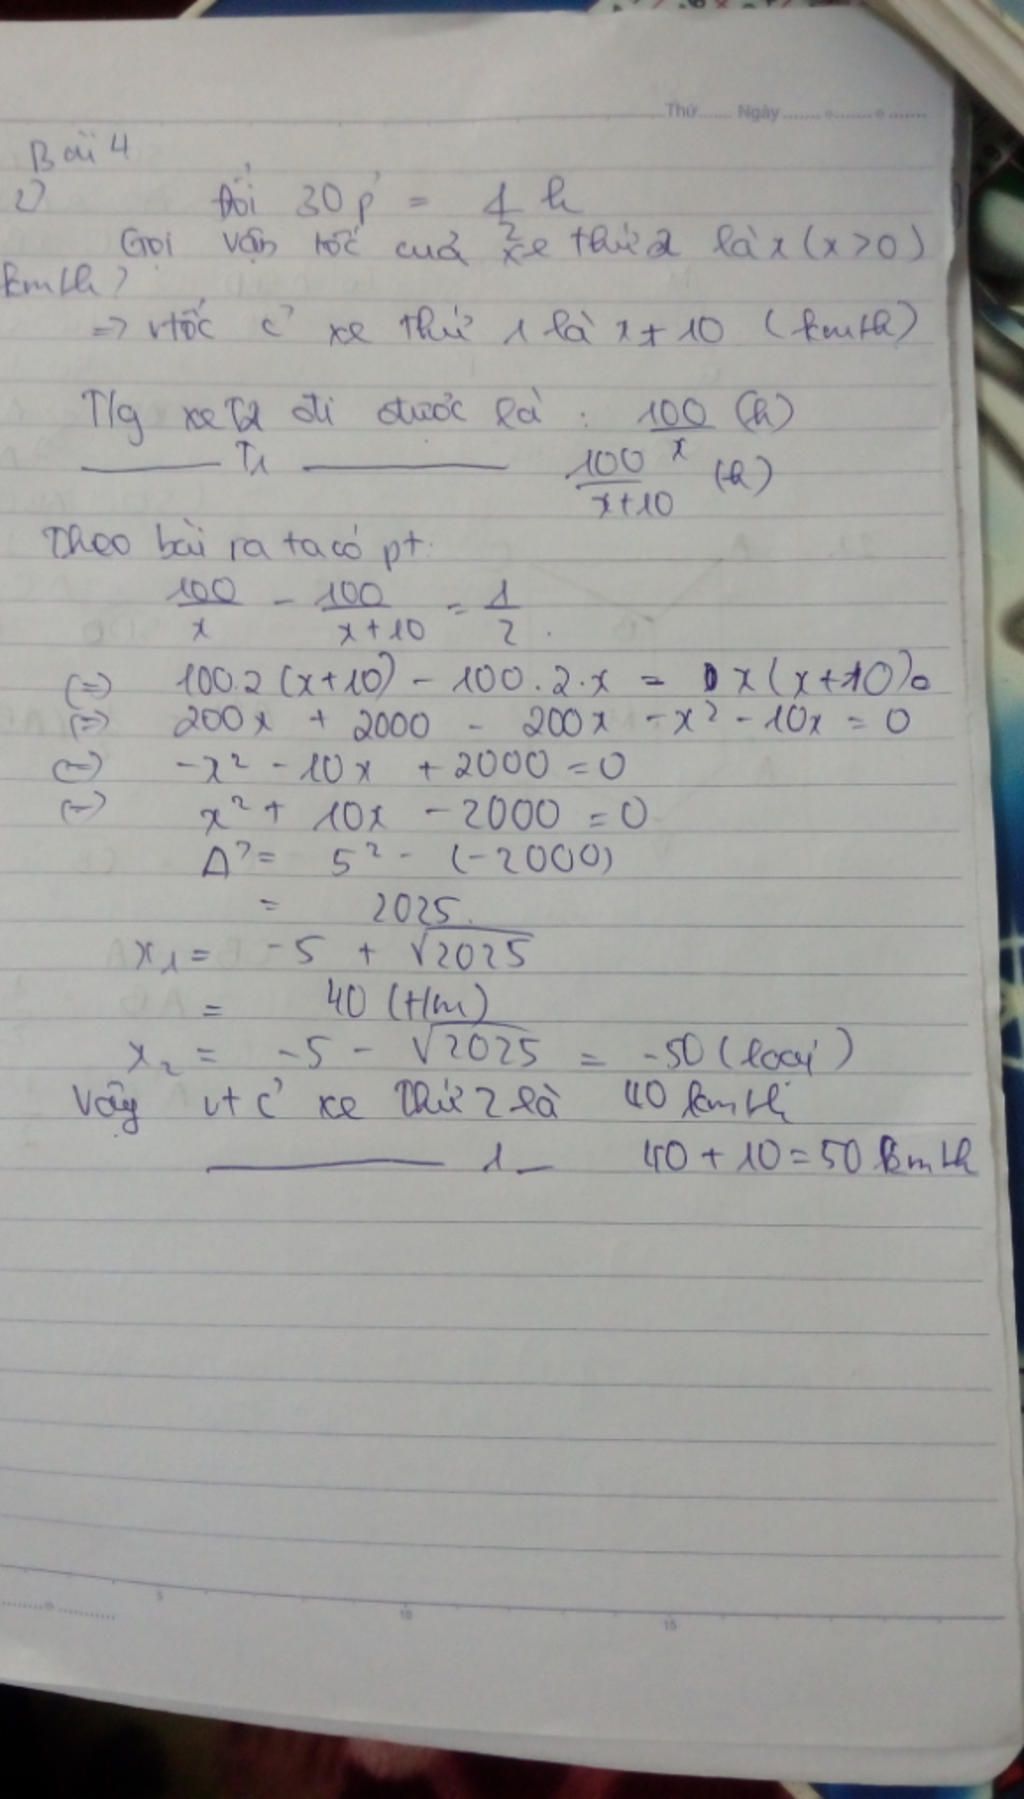 Thứ....... Ngày.......o.......o.......
Bài 4
2) Đổi 30 p' = 1/2 h
Gọi vận tốc cuả xe thứ 2 là x (x>0)
km/h)
=> vtốc c' xe thứ 1 là x + 10 (km/h)
T/g xe T2 đi được là : 100/x (h)
——— T1 ——— 100/x+10 (h)
Theo bài ra ta có pt:
100/x - 100/x+10 = 1/2.
(=) 100.2 (x+10) - 100.2.x = x(x+10)
(=) 200x + 2000 - 200x - x² - 10x = 0
(=) -x² - 10x + 2000 = 0
(=) x² + 10x - 2000 = 0
Δ' = 5² - (-2000)
= 2025.
x1 = -5 + √2025
= 40 (t/m)
x2 = -5 - √2025 = -50 (loại)
Vậy vt c' xe thứ 2 là 40 km/h
——— 1 — 40 + 10 = 50 km/h
5 10 15